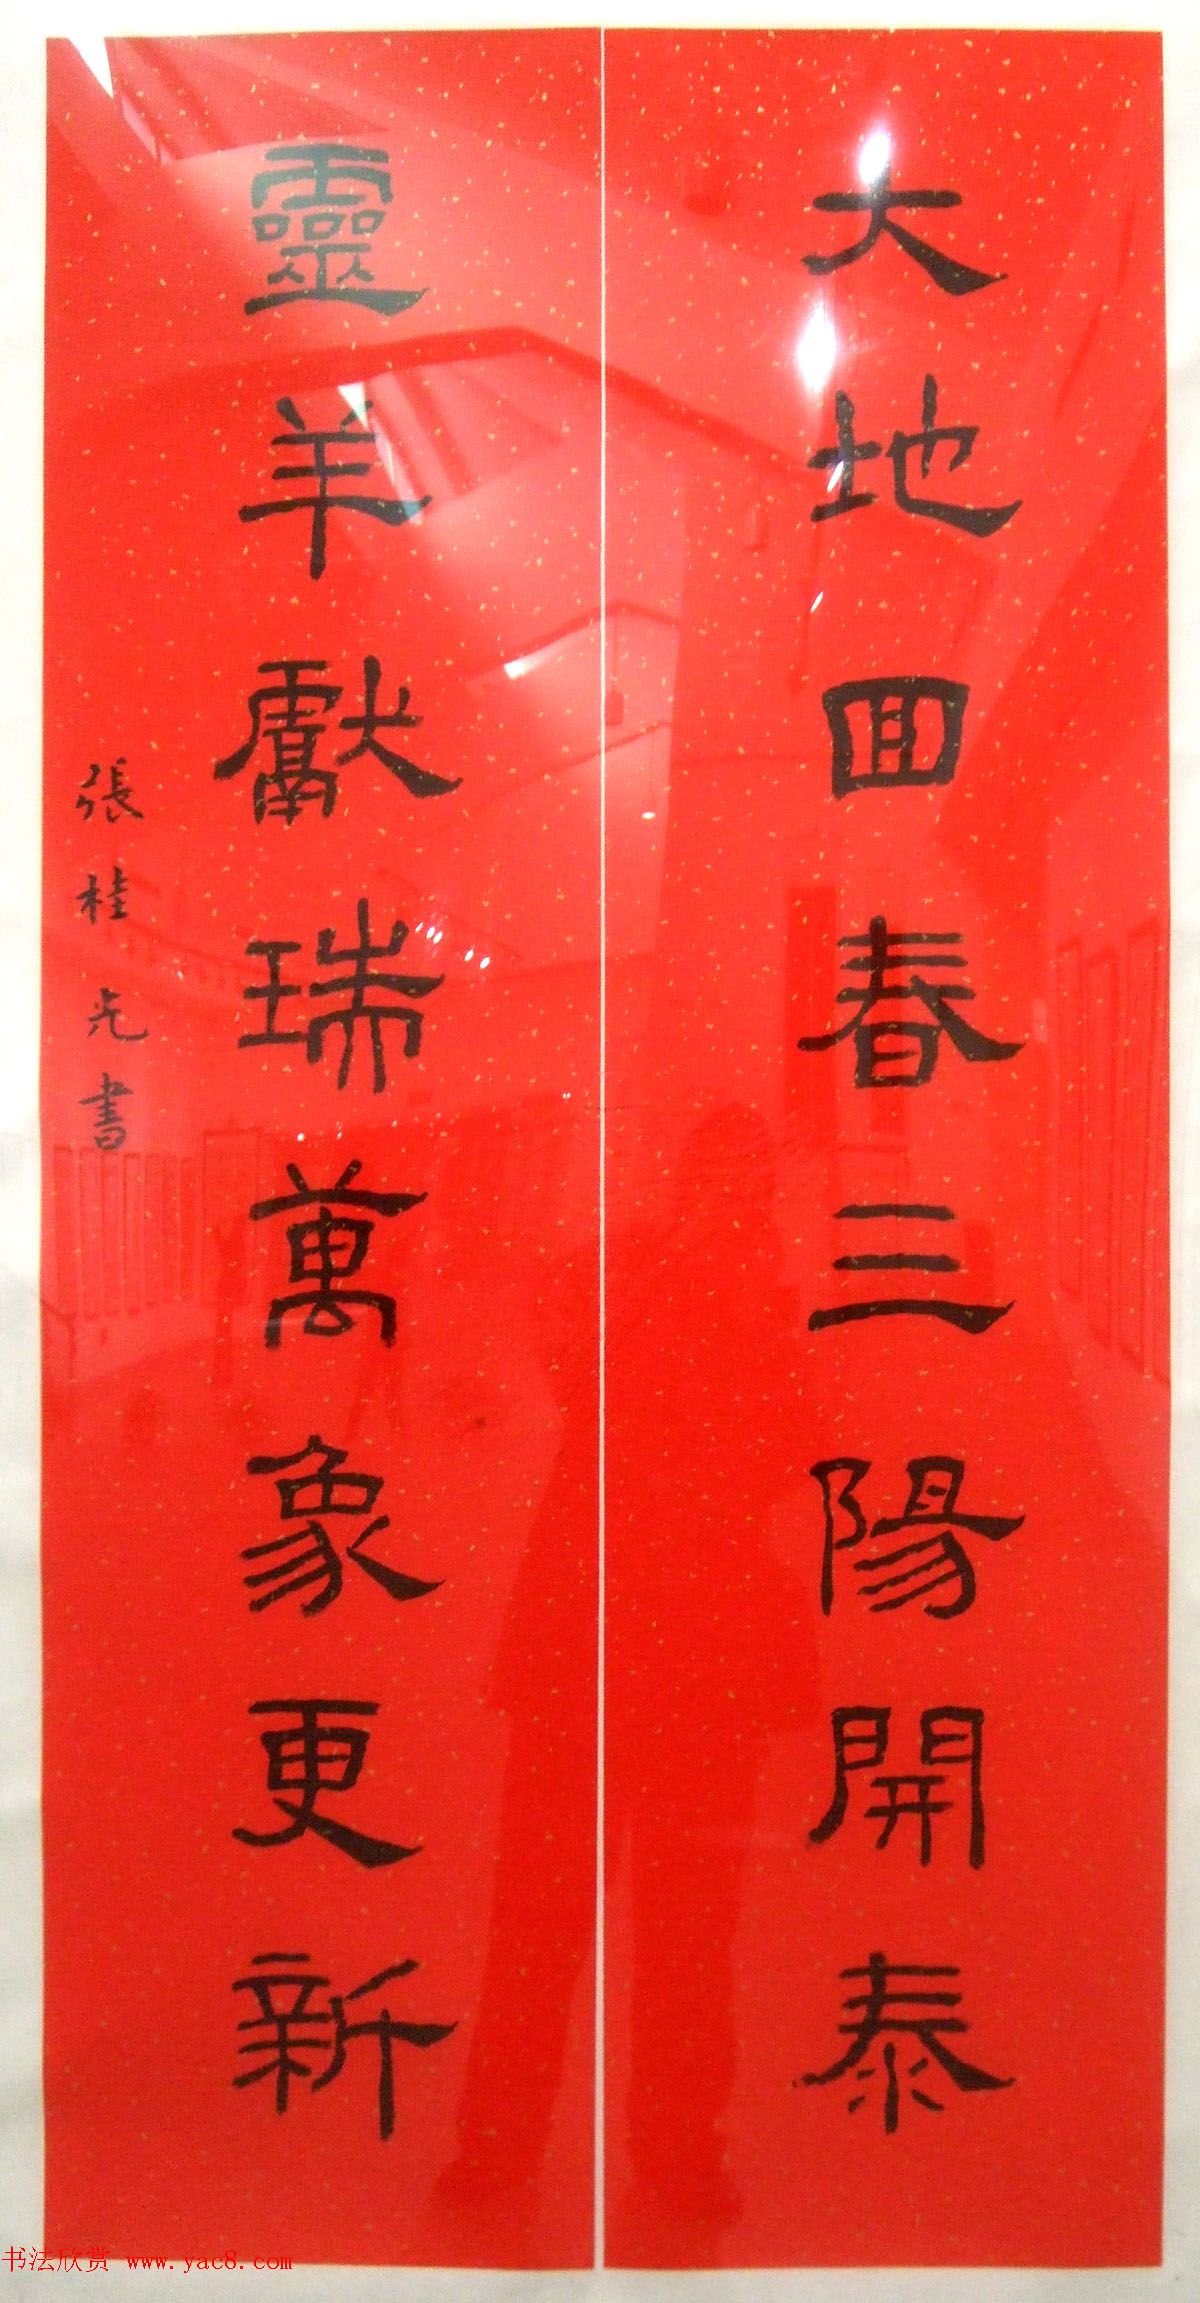 大地回春三陽開泰
靈羊獻瑞萬象更新
張桂光書
书法欣赏 www.yac8.com